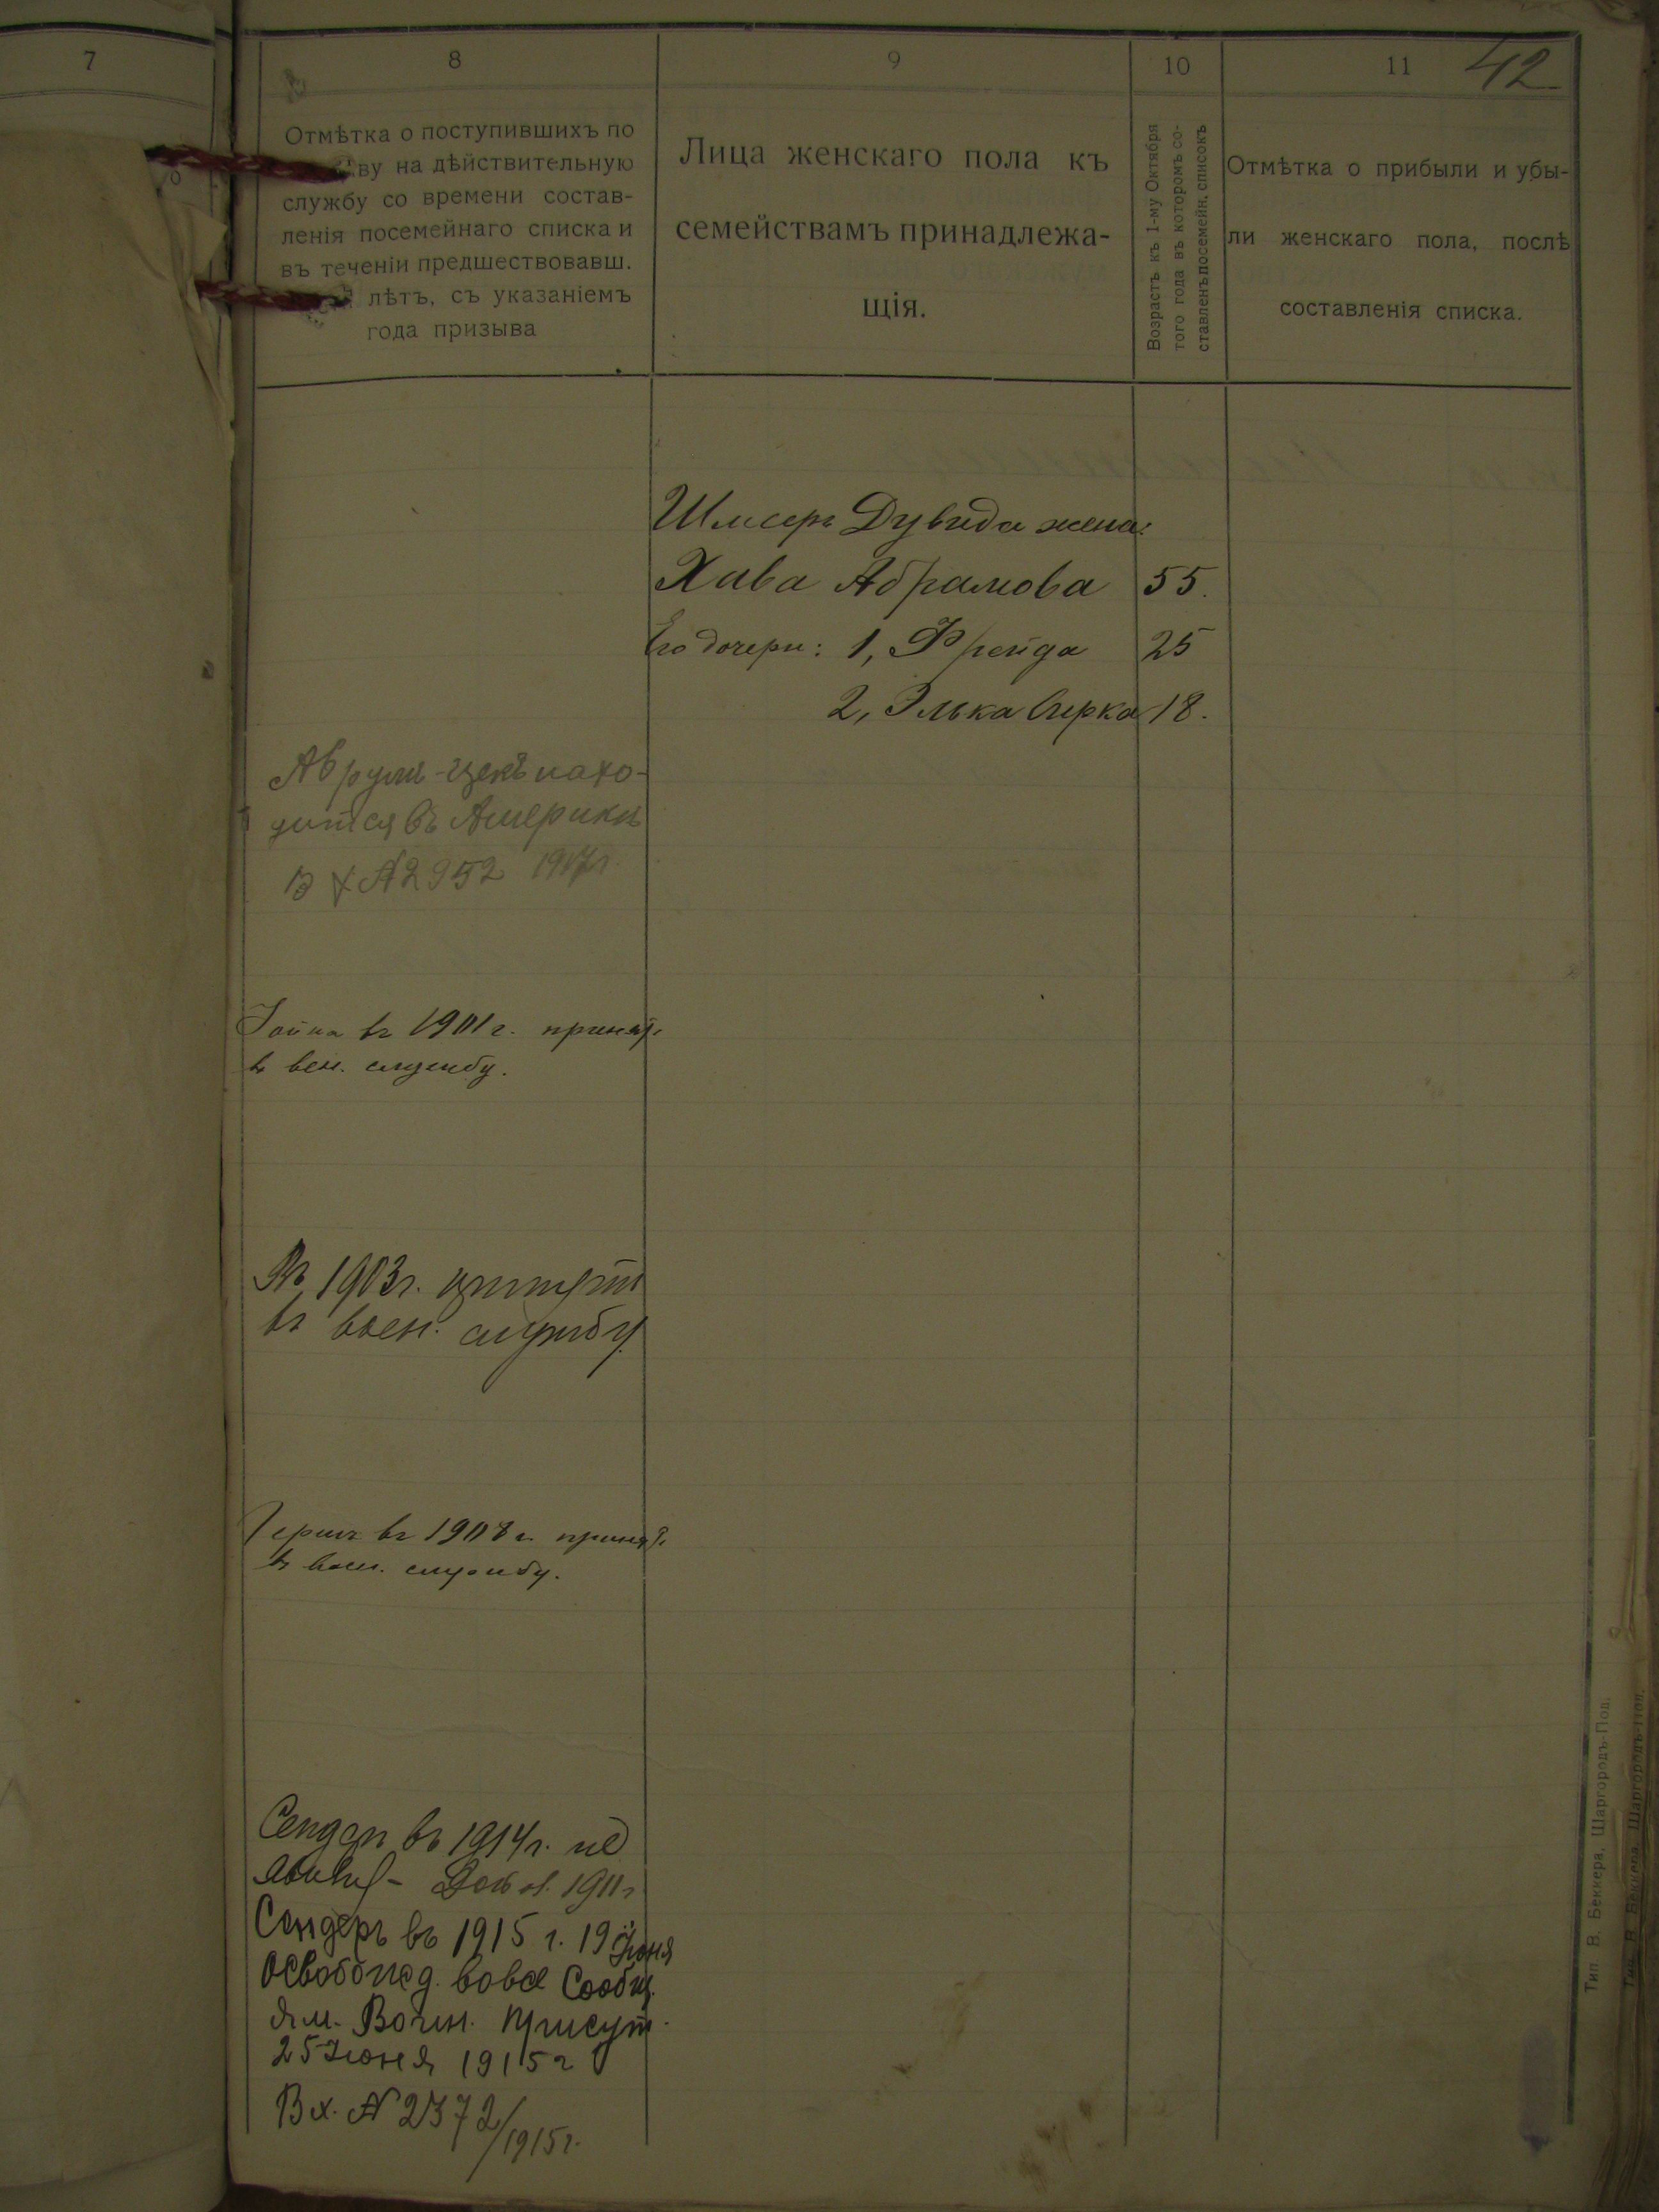 7
8
9
10
11
42
Отмѣтка о поступившихъ по
ву на дѣйствительную
службу со времени состав-
ленія посемейнаго списка и
въ теченіи предшествовавш.
лѣтъ, съ указаніемъ
года призыва
Лица женскаго пола къ
семействамъ принадлежа-
щія.
Возрастъ къ 1-му Октября
того года въ которомъ со-
ставленъ посемейн. списокъ
Отмѣтка о прибыли и убы-
ли женскаго пола, послѣ
составленія списка.
Дувида жена:
Хива Абрамова 55.
Его дочери: 1, Фрейда 25
2, Элька Сирка 18.
Аврум-Ицекъ нахо-
дится въ Америки
Вх № 2952
въ 1901 г. принятъ
въ воен. службу.
Въ 1903 г. принятъ
въ воен. службу.
Гершъ въ 1908 г. принятъ
въ воен. службу.
Сендеръ въ 1914 г. не
1911 г
Сендеръ въ 1915 г. 19 Іюня
Освобожд. вовсе Сообщ.
Ям. Воин. Присут.
25 Іюня 1915 г
Вх. № 2372/1915 г.
Тип. В. Беккера, Шаргородъ-Под.
Тип. В. Беккера, Шаргородъ-Под.